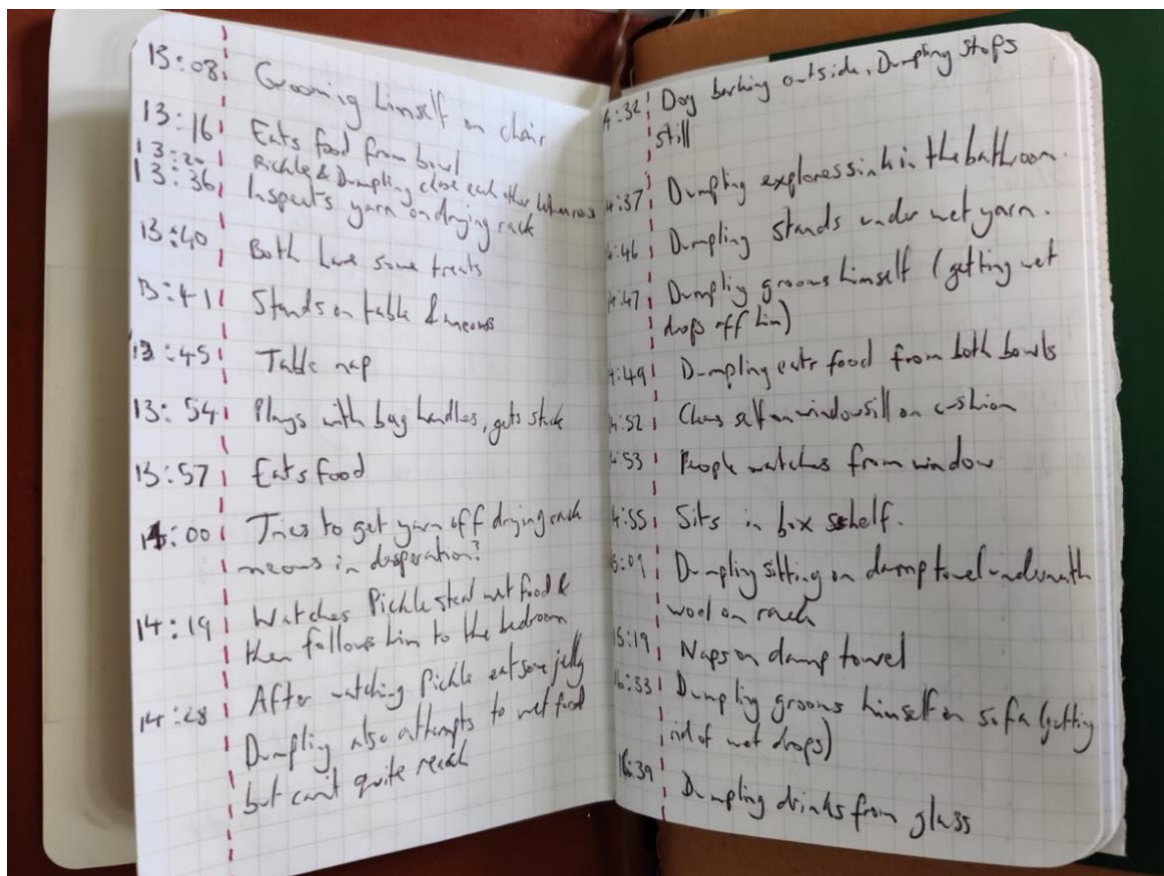 13:08 Grooming himself on chair
13:16 Eats food from bowl
13:20 Pickle & Dumpling chase each other
13:36 Inspects yarn on drying rack
13:40 Both have some treats
13:41 Stands on table & meows
13:45 Table nap
13:54 Plays with bag handles, gets stuck
13:57 Eats food
14:00 Tries to get yarn off drying rack
meows in desperation?
14:19 Watches Pickle steal wet food &
then follows him to the bedroom
14:28 After watching Pickle eat some jelly
Dumpling also attempts to wet food
but can't quite reach
4:32 Dog barking outside, Dumpling stops
still
4:37 Dumpling explores sink in the bathroom.
4:46 Dumpling stands under wet yarn.
4:47 Dumpling grooms himself (getting wet
drops off him)
4:49 Dumpling eats food from both bowls
4:52 Cleans self on windowsill on cushion
4:53 People watches from window
4:55 Sits in box shelf.
15:09 Dumpling sitting on damp towel underneath
wool on rack
15:19 Naps on damp towel
16:33 Dumpling grooms himself on sofa (getting
rid of wet drops)
16:39 Dumpling drinks from glass